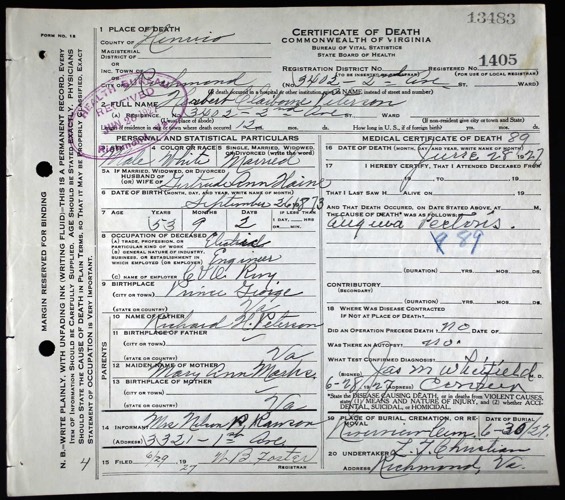 13483
FORM NO. 12
1 PLACE OF DEATH
COUNTY OF Henrico
MAGISTERIAL DISTRICT OF
OR
INC. TOWN OF
OR
CITY OF Richmond
CERTIFICATE OF DEATH
COMMONWEALTH OF VIRGINIA
BUREAU OF VITAL STATISTICS
STATE BOARD OF HEALTH
REGISTRATION DISTRICT NO.
1405
(TO BE INSERTED BY REGISTRAR)
(FOR USE OF LOCAL REGISTRAR)
3402-2nd Ave
(If death occurred in a hospital or other institution, give its NAME instead of street and number)
2 FULL NAME Norbert Claiborne Peterson
RESIDENCE NO. 3402-2nd Ave
(Usual place of abode)
(If non-resident give city or town and State)
HEALTH BUREAU
RECEIVED
JUN 30
Richmond
PERSONAL AND STATISTICAL PARTICULARS
4 COLOR OR RACE
SINGLE, MARRIED, WIDOWED, OR DIVORCED (write the word)
Male White Married
5A IF MARRIED, WIDOWED, OR DIVORCED
HUSBAND OF
(OR) WIFE OF Gertrude Ann Haine
6 DATE OF BIRTH (MONTH, DAY, AND YEAR, WRITE NAME OF MONTH)
September 26 1873
7 AGE YEARS MONTHS DAYS
53 9 2
8 OCCUPATION OF DECEASED
(A) TRADE, PROFESSION, OR PARTICULAR KIND OF WORK
(B) GENERAL NATURE OF INDUSTRY, BUSINESS, OR ESTABLISHMENT IN WHICH EMPLOYED (OR EMPLOYER)
Engineer
(C) NAME OF EMPLOYER C & O Rwy
9 BIRTHPLACE
(CITY OR TOWN) Prince George
(STATE OR COUNTRY) Va
PARENTS
10 NAME OF FATHER
Richard N. Peterson
11 BIRTHPLACE OF FATHER
(CITY OR TOWN)
(STATE OR COUNTRY) Va
12 MAIDEN NAME OF MOTHER
Mary Ann Marks
13 BIRTHPLACE OF MOTHER
(CITY OR TOWN)
(STATE OR COUNTRY) Va
14 INFORMANT Mrs Nelson R. Rawson
(ADDRESS) 3321-1st Ave
15 FILED 6/29 1927 W B Foster
REGISTRAR
MEDICAL CERTIFICATE OF DEATH
89
16 DATE OF DEATH (MONTH, DAY, AND YEAR, WRITE NAME OF MONTH)
June 28 1927
17 I HEREBY CERTIFY, THAT I ATTENDED DECEASED FROM
THAT I LAST SAW H ALIVE ON 19
AND THAT DEATH OCCURRED, ON DATE STATED ABOVE, AT M.
THE CAUSE OF DEATH* WAS AS FOLLOWS:
Angina Pectoris
89
(DURATION) YRS. MOS. DS.
CONTRIBUTORY
(SECONDARY)
(DURATION) YRS. MOS. DS.
18 WHERE WAS DISEASE CONTRACTED
IF NOT AT PLACE OF DEATH?
DID AN OPERATION PRECEDE DEATH? no DATE OF
WAS THERE AN AUTOPSY? no.
WHAT TEST CONFIRMED DIAGNOSIS?
(SIGNED) Jas M Whitfield M. D.
6-28, 1927 (ADDRESS) Coroner
*State the DISEASE CAUSING DEATH, or in deaths from VIOLENT CAUSES, state (1) MEANS AND NATURE OF INJURY, and (2) whether ACCIDENTAL, SUICIDAL, or HOMICIDAL.
19 PLACE OF BURIAL, CREMATION, OR REMOVAL
DATE OF BURIAL
Riverview Cem. 6-30 1927
20 UNDERTAKER L. T. Christian
(ADDRESS) Richmond, Va.
MARGIN RESERVED FOR BINDING
N. B.—WRITE PLAINLY, WITH UNFADING INK (WRITING FLUID)—THIS IS A PERMANENT RECORD. EVERY ITEM OF INFORMATION SHOULD BE CAREFULLY SUPPLIED. AGE SHOULD BE STATED EXACTLY. PHYSICIANS SHOULD STATE THE CAUSE OF DEATH IN PLAIN TERMS, SO THAT IT MAY BE PROPERLY CLASSIFIED. EXACT STATEMENT OF OCCUPATION IS VERY IMPORTANT.
4